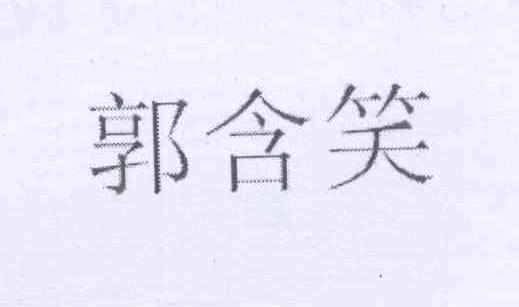 郭含笑